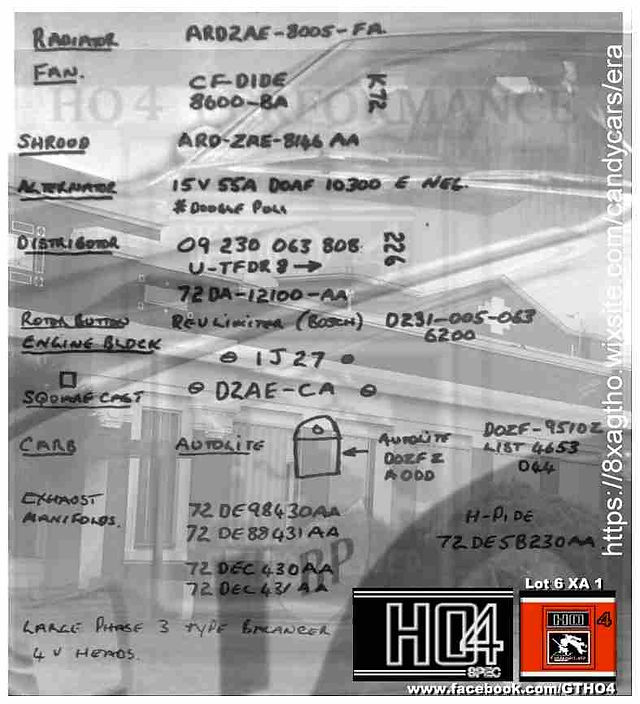 RADIATOR ARDZAE-8005-FA
FAN. CF-DIDE K72
8600-BA
HO4 PERFORMANCE
SHROUD ARD-ZAE-8146 AA
ALTERNATOR 15V 55A DOAF 10300 E NEG.
* DOUGLE PULL
DISTRIBUTOR 09 230 063 808 226
U-TFDR 8 →
72DA-12100-AA
ROTOR BUTTON REV LIMITER (BOSCH) 0231-005-063
6200
ENGINE BLOCK 1J27
SQUARE CAST D2AE-CA
CARB AUTOLITE AUTOLITE DOZF-9510Z
DOZFZ LIST 4653
A ODD 044
EXHAUST 72 DE 98430AA H-PIDE
MANIFOLDS. 72 DE 88431AA 72DE5B230AA
72 DEC 430AA
72 DEC 431 AA
LARGE PHASE 3 TYPE BALANCER
4 V HEADS.
https://8xagtho.wixsite.com/candycars/era
Lot 6 XA 1
HO4
SPEC
4
www.facebook.com/GTHO4